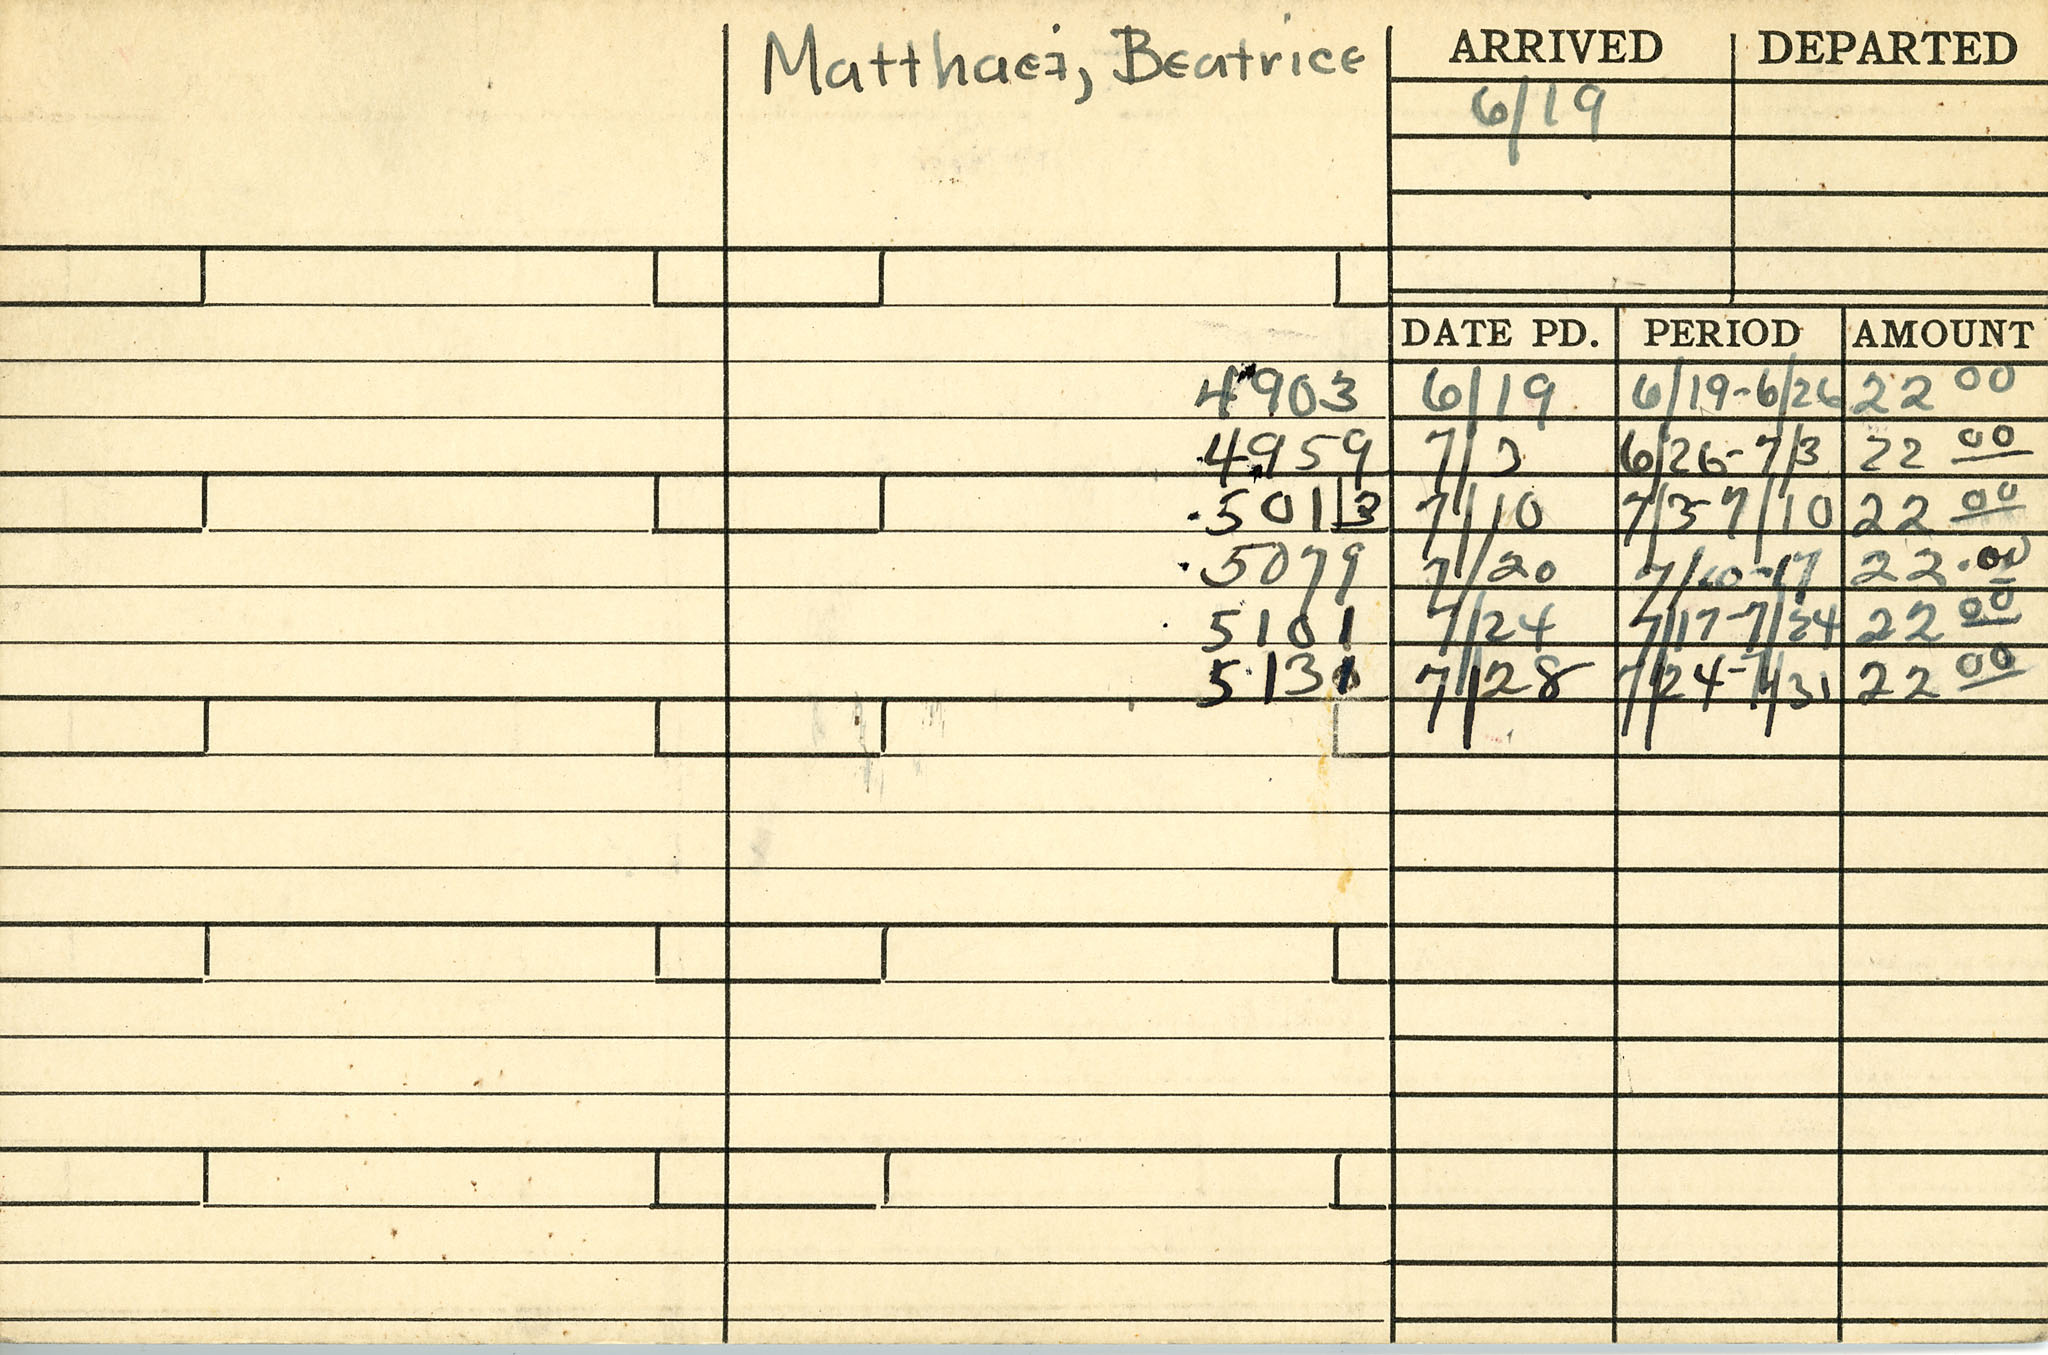 Matthaei, Beatrice
ARRIVED DEPARTED
6/19
DATE PD. PERIOD AMOUNT
4903 6/19 6/19-6/26 22 00
4959 7/3 6/26-7/3 22 00
5013 7/10 7/3-7/10 22 00
5079 7/20 7/10-17 22.00
5101 7/24 7/17-7/24 22 00
5131 7/28 7/24-7/31 22 00